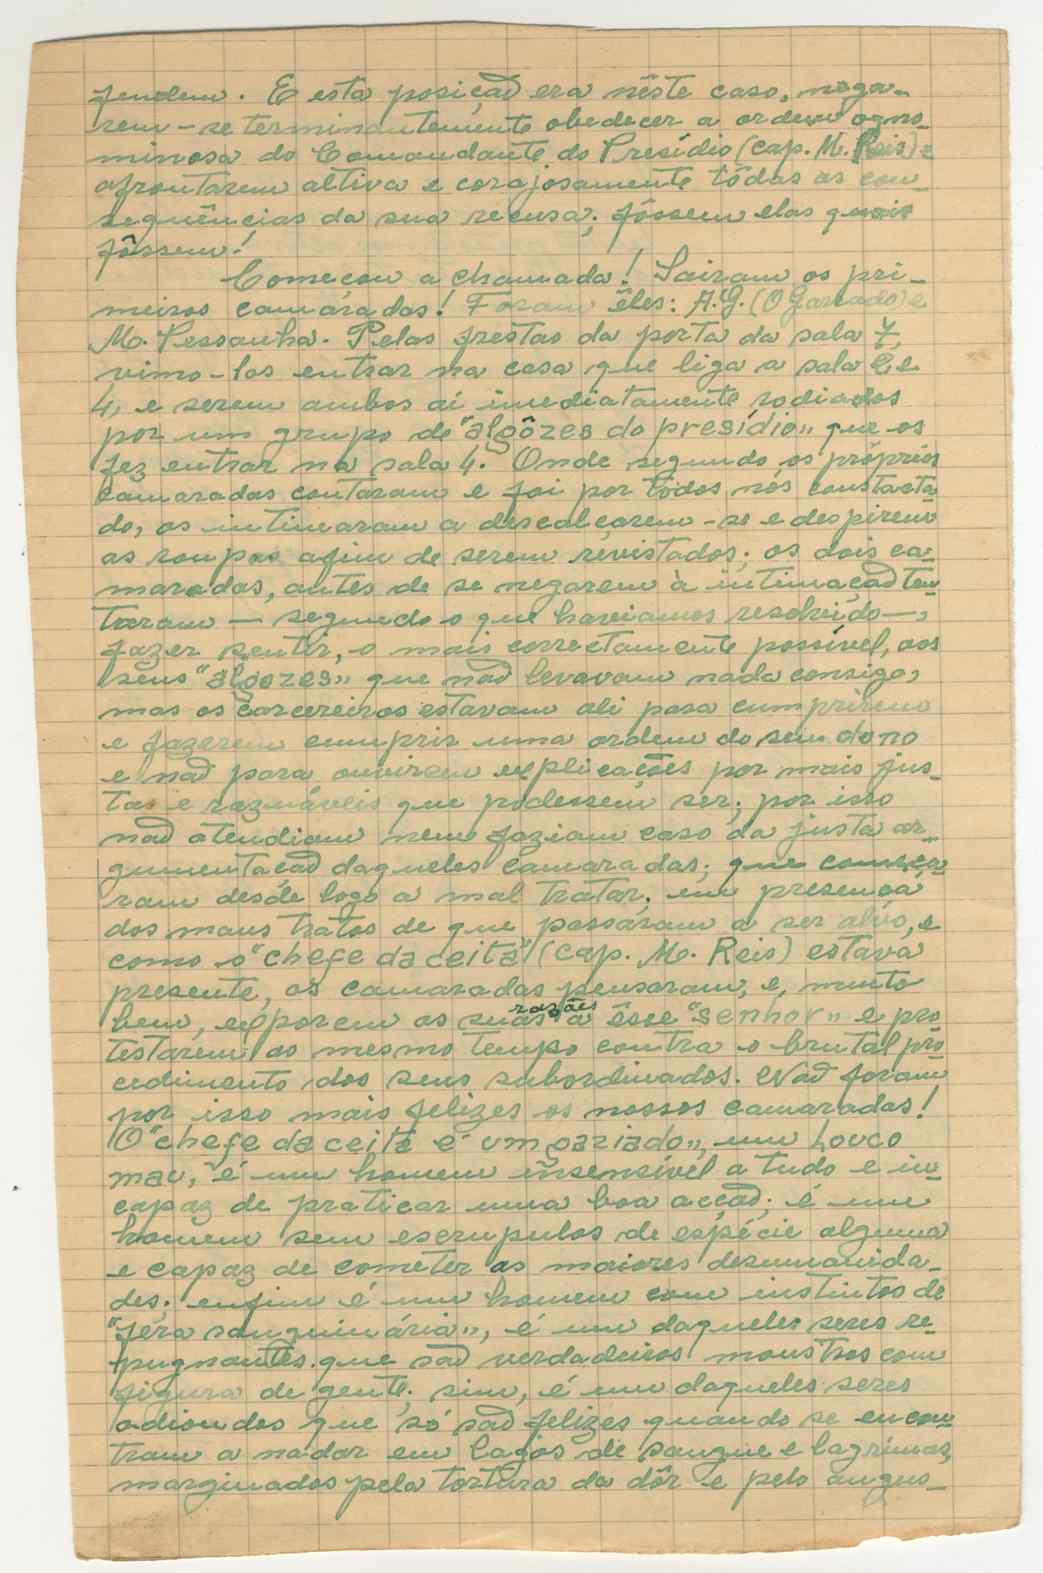 fendem. E esta posição era nêste caso, nega-
rem-se terminantemente obedecer a ordem igno-
minosa do Comandante do Presídio (cap. M. Reis) e
afrontarem altiva e corajosamente tôdas as con-
sequências da sua recusa; fôssem elas quais
fôssem!
Começou a chamada! Sairam os pri-
meiros camáradas! Foram êles: A.G. (O Gaseado) e
M. Pessanha. Pelas frestas da porta da sala 7,
vimo-los entrar na casa que liga a sala 2 e
4, e serem ambos aí imediatamente rodiados
por um grupo de "algôzes do presídio" que os
fez entrar na sala 4. Onde segundo os próprios
camaradas contaram e foi por todos nos constacta
do, os intimaram a descalçarem-se e despirem
as roupas afim de serem revistados; os dois ca-
maradas, antes de se negarem à intimação ten
taram — segundo o que haviamos resolvido —,
fazer sentir, o mais correctamente possível, aos
seus "algozes" que não levavam nada consigo,
mas os carcereiros estavam ali para cumprirem
e fazerem cumprir uma ordem do seu dono
e não para ouvirem explicações por mais jus-
tas e razuáveis que podessem ser; por isso
não atendiam nem faziam caso da justa ar-
gumentação daqueles camaradas; que começa-
ram desde logo a mal tratar; em presença
dos maus tratos de que passáram a ser alvo, e
como o "chefe da ceita" (cap. M. Reis) estava
presente, os camaradas pensaram, e, muito
bem, exporem as suas razões a êsse "senhor" e pro
testarem ao mesmo tempo contra o brutal pro
cedimento dos seus subordinados. Não foram
por isso mais felizes os nossos camaradas!
O "chefe da ceita é um gaziado", um louco
mau, é um homem insensível a tudo e in-
capaz de praticar uma boa acção; é um
homem sem escrupulos de espécie alguma
e capaz de cometer as maiores desumanida-
des; enfim é um homem com instintos de
"féra sanguinária", é um daqueles seres re-
pugnantes que são verdadeiros monstros com
figura de gente; sim, é um daqueles seres
odiondos que só são felizes quando se encon
tram a nadar em lagos de sangue e lagrimas,
marginados pela tortura da dôr e pelo angus-